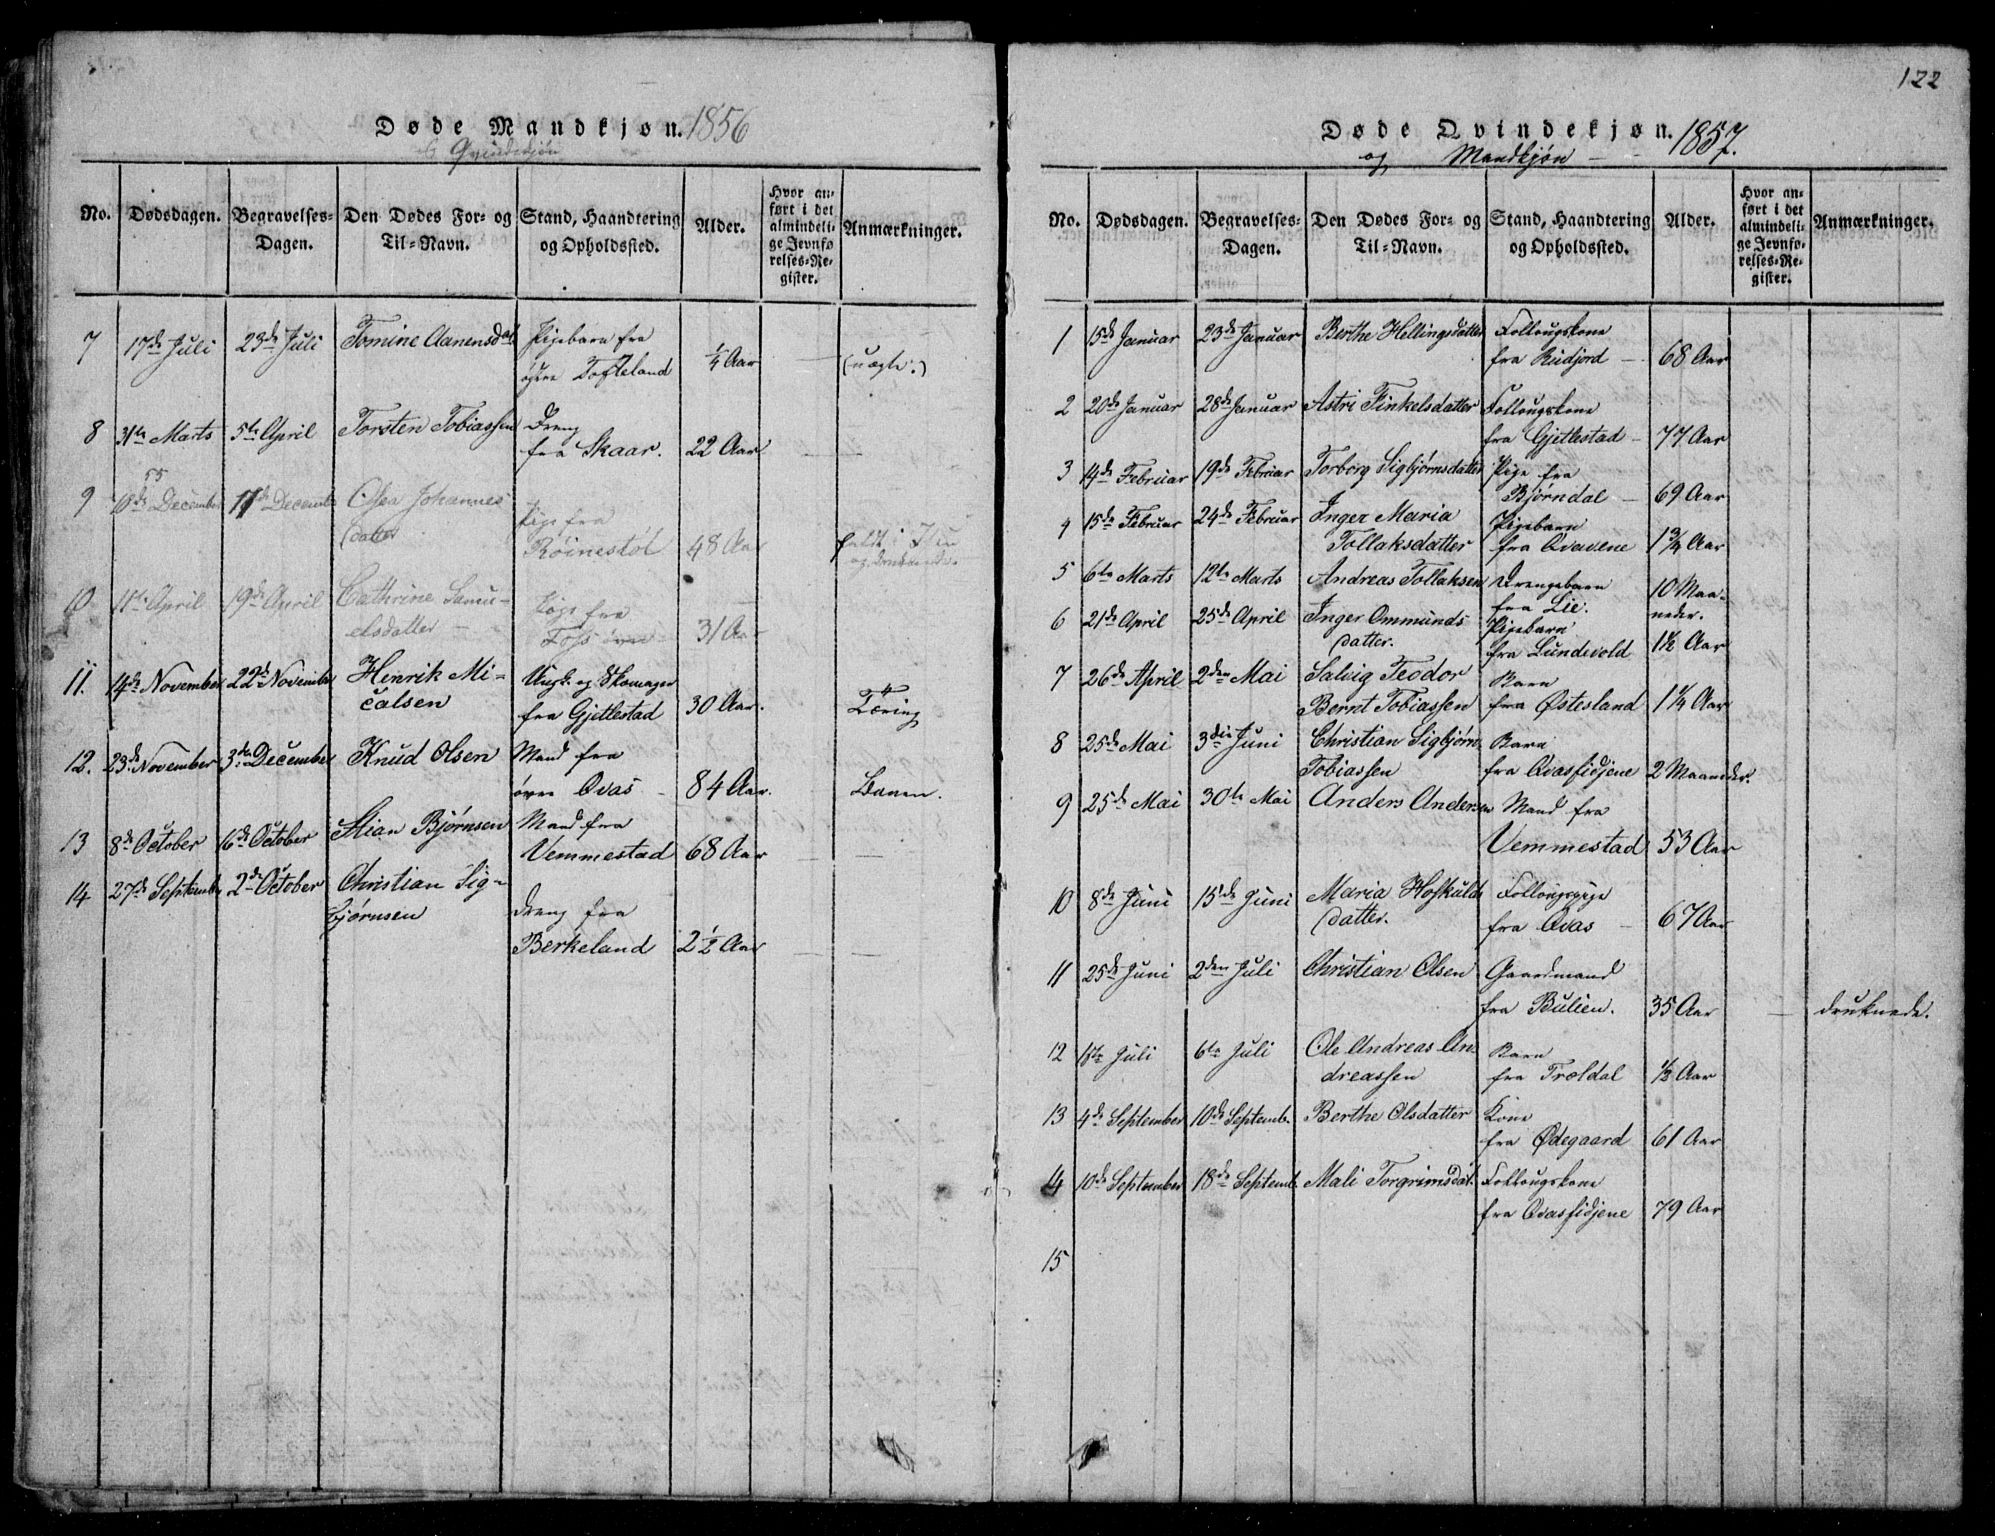 Døde Mandkjøn. 1856
& Qvindekjøn
No. Dødsdagen. Begravelses-Dagen. Den Dødes For- og Til-Navn. Stand, Haandtering og Opholdssted. Alder. Hvor anført i det almindelige Jevnførelses-Register. Anmærkninger.
7 17de Juli 23de Juli Tomine Aanensdat. Pigebarn fra
øvre Tofteland ¼ Aar — (uægte.)
8 31te Marts 5te April Torsten Tobiassen Dreng
fra Skaar. 22 Aar — —
55
9 10de December 17de Decemb. Olea Johannes
datter Pige fra
Røinestøl 48 Aar faldt i
og druknede.
10 11te April 19de April Cathrine Samu-
elsdatter — Pige fra
Foss øvre 31 Aar —
11. 14de November 22de Novembr Henrik Mi-
calsen Ungk. og Skomager
fra Gjetlestad 30 Aar. Tæring
12. 23de November 3die December Knud Olsen Mand fra
øvre Qvas — 84 Aar.
13 8de October 16de October Stian Bjørnsen Mand fra
Vemmestad 68 Aar — —
14 27de Septemb. 2de October Christian Sig-
bjørnsen Dreng fra
Berkeland 2½ Aar — —
122
Døde Qvindekjøn. 1857.
og Mandkjøn —
No. Dødsdagen. Begravelses-Dagen. Den Dødes For- og Til-Navn. Stand, Haandtering og Opholdssted. Alder. Hvor anført i det almindelige Jevnførelses-Register. Anmærkninger.
1 15de Januar 23de Januar Berthe Hellingsdatter Follougskone
fra Rudjord — 68 Aar
2 20de Januar 28de Januar Astri Finkelsdatter Follougskone
fra Gjetlestad — 77 Aar
3 14de Februar 19de Februar Torborg Sigbjørnsdatter Pige fra
Bjørndal — 69 Aar
4 15de Februar 24de Februar Inger Maria
Tollaksdatter Pigebarn
fra Qvavene 1¾ Aar
5 6te Marts 12te Marts Andreas Tollaksen Drengebarn
fra Lie. 10 Maa-
neder.
6 21de April 25de April Inger Ommunds
datter. Pigebarn
fra Lundevold 1½ Aar
7 26de April 2den Mai Salvig Teodor
Bernt Tobiassen Barn
fra Østesland 1¼ Aar
8 25de Mai 3die Juni Christian Sigbjørn
Tobiassen Barn
fra Qvasfidjene 2 Maaneder.
9 25de Mai 30te Mai Anders Andersen Mand fra
Vemmestad 53 Aar
10 8de Juni 15de Juni Maria Hoskulds
datter. Follougspige
fra Qvas — 67 Aar
11 25de Juni 2den Juli Christian Olsen Gaardmand
fra Bulien. 35 Aar — druknede.
12 1ste Juli 6te Juli Ole Andreas An-
dreassen Barn
fra Trældal ½ Aar
13 4de September 10de Septemb. Berthe Olsdatter Kone
fra Ødegaard 61 Aar
14 10de September 18de Septemb. Mali Torgrimsdat. Follougskone
fra Qvasfidjene 79 Aar
15